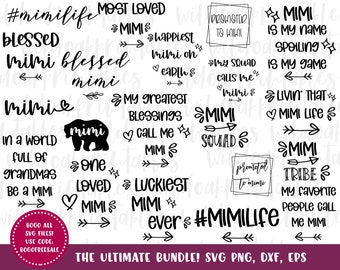 #mimilife
MOST LOVED
MIMI
PROMOTED
TO MIMI
MIMI
IS MY NAME
SPOILING
IS MY GAME
blessed
mimi
blessed
mimi
HAPPIEST
MIMI ON
EARTH
MY SQUAD
CALLS ME
mimi
LIVIN' THAT
MIMI LIFE
mimi
mimi
MY GREATEST
BLESSINGS
CALL ME
MIMI
MIMI
SQUAD
IN A WORLD
FULL OF
GRANDMAS
BE A MIMI
ONE
LOVED
MIMI
LUCKIEST
MIMI
EVER
promoted
to mimi
MIMI
TRIBE
#MIMILIFE
MY FAVORITE
PEOPLE CALL
ME MIMI
BOGO ALL
SVG FILES!
USE CODE:
BOGOFREESALE
THE ULTIMATE BUNDLE! SVG PNG, DXF, EPS